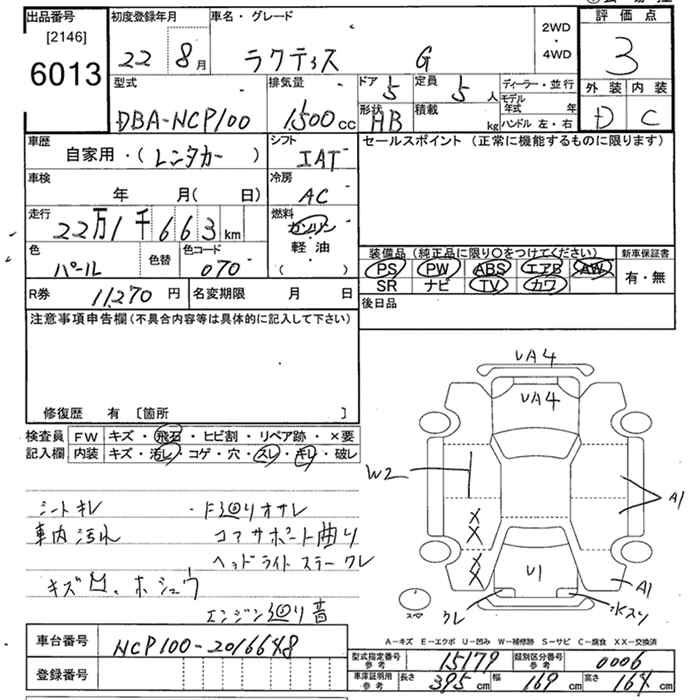 出品番号 初度登録年月 車名・グレード 2WD・4WD 評価点
[2146]
6013 22 8月 ラクティス G 3
型式 排気量 ドア 定員 ディーラー・並行 外装 内装
DBA-NCP100 1500cc 5 5人 モデル年式 年 D C
形状 積載 ハンドル 左・右
HB kg
車歴 シフト セールスポイント (正常に機能するものに限ります)
自家用・(レンタカー) IAT
車検 冷房
年 月(日) AC
走行 燃料
22万1千663km ガソリン
軽・油
( )
色 色替 色コード 装備品 (純正品に限り○をつけてください) 新車保証書
パール 070 PS PW ABS エアB AW 有・無
SR ナビ TV カワ
R券 11,270円 名変期限 月 日 後日品
注意事項申告欄(不具合内容等は具体的に記入して下さい)
修復歴 有 [箇所 ]
検査員 FW キズ・飛石・ヒビ割・リペア跡・×要
記入欄 内装 キズ・汚レ・コゲ・穴・スレ・キレ・破レ
UA4
UA4
W2
A1
X
X
X
X
U1
A1
クレ
スペア
シートキレ ・下廻りオサレ
車内汚れ コアサポート曲り
ヘッドライトステークレ
キズ凹、ホシュウ
エンジン廻り音
A-キズ E-エクボ U-凹み W-補修跡 S-サビ C-腐食 XX-交換済
車台番号 NCP100-2016648
登録番号
型式指定番号 参考 15179 類別区分番号 参考 0006
車庫証明用 参考 長さ 395cm 幅 169cm 高さ 164cm